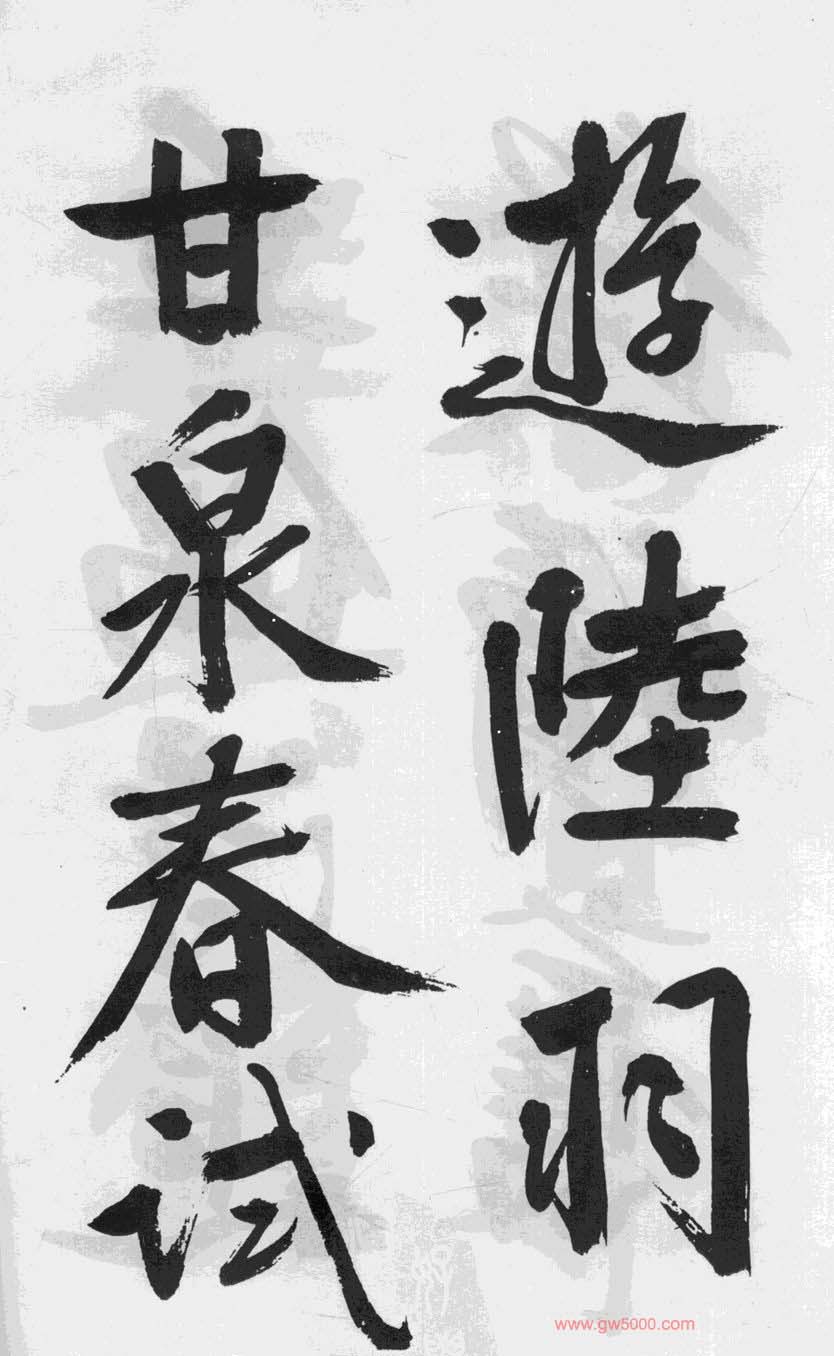 遊陸羽
甘泉春试
www.gw5000.com